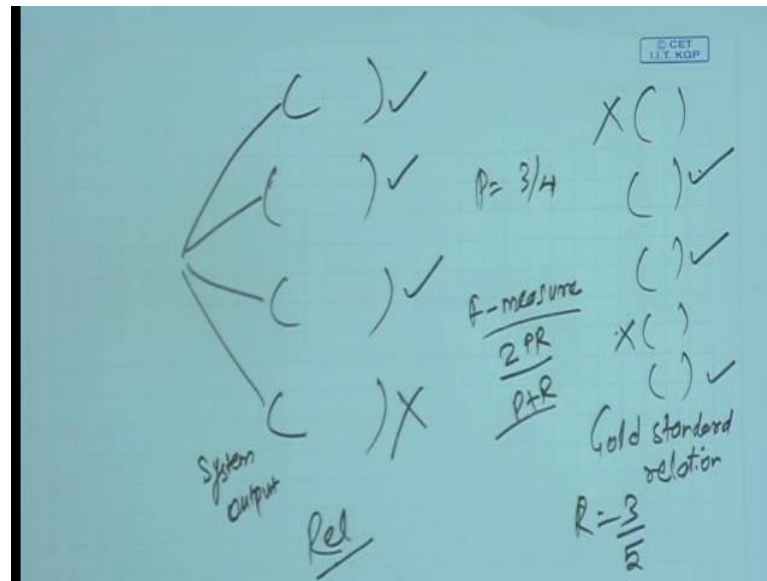 © CET
I.I.T. KGP
( ) ✓
( ) ✓
( ) ✓
( ) X
System
output
Rel
P = 3/4
F-measure
2PR
P+R
X ( )
( ) ✓
( ) ✓
X ( )
( ) ✓
Gold standard
relation
R = 3
5